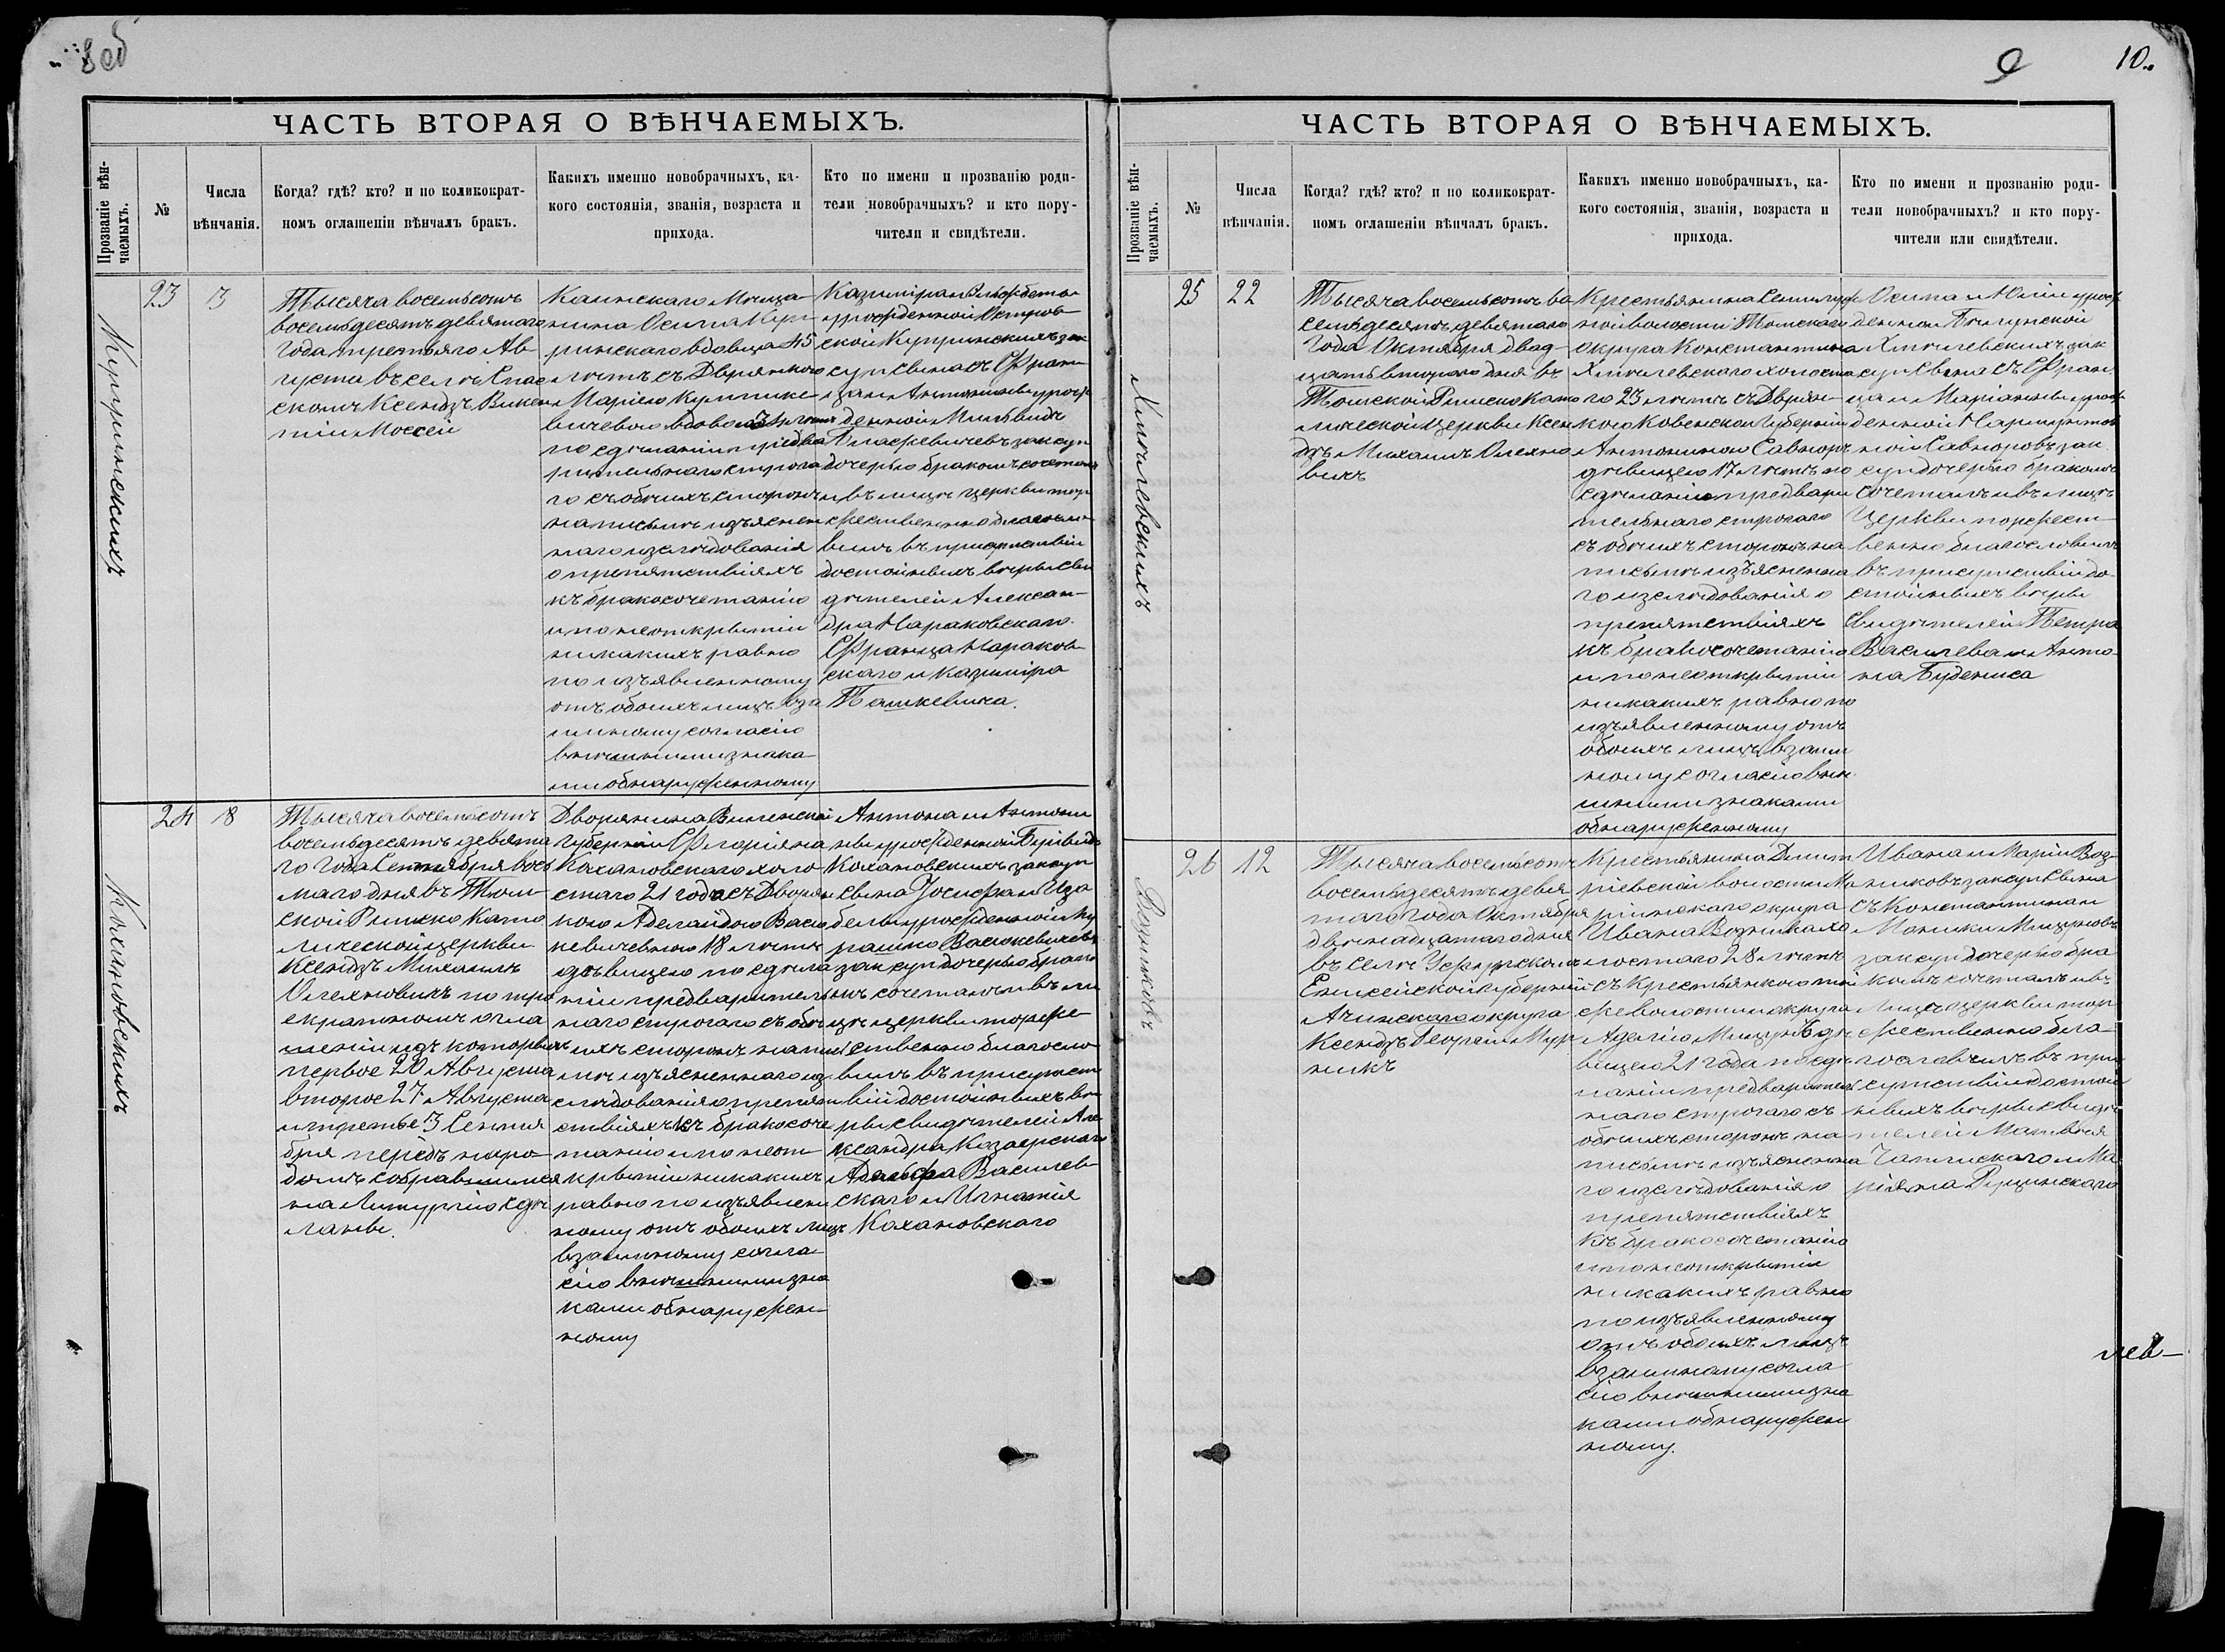 8 об
ЧАСТЬ ВТОРАЯ О ВѢНЧАЕМЫХЪ.
Прозваніе вѣн-
чаемыхъ.
№
Числа
вѣнчанія.
Когда? гдѣ? кто? и по коликократ-
номъ оглашеніи вѣнчалъ бракъ.
Какихъ именно новобрачныхъ, ка-
кого состоянія, званія, возраста и
прихода.
Кто по имени и прозванію роди-
тели новобрачныхъ? и кто пору-
чители и свидѣтели.
Купринскихъ
23
3
Тысяча восемьсотъ
восемьдесятъ девятаго
года третьяго Ав
густа въ селѣ Спас
скомъ Ксендзъ Викен
тій Моссей
Каинскаго Мѣща-
нина Осипа Куп
ринскаго вдовца 45
лѣтъ съ Дворянкою
Маріею
вичевою вдовою лѣтъ
по сдѣланіи предва
рительнаго строга
го съ обѣихъ сторонъ
на письмѣ изъяснен
наго изслѣдованія
о препятствіяхъ
къ бракосочетанію
и по неоткрытіи
никакихъ равно
по изъявленному
отъ обоихъ лицъ вза
имному согласію
внѣшними знака
ми обнаруженному
Казиміра и Елисабеты
урожденной Остров
ской Купринскихъ зак
суп сына съ Фран
ца и Антонины урож
денной Мильвидъ
зак суп
дочерью бракомъ сочеталъ
и въ лицѣ церкви тор
жественно благосло
вилъ въ присутствіи
достойныхъ вѣры сви
дѣтелей Алексан-
дра Нараковскаго
Франца Нараков-
скаго и Казиміра
Пашкевича.
Кахановскихъ
24
8
Тысяча восемьсотъ
восемьдесятъ девята
го года Сентября вось
маго дня въ Том-
ской Римско Като
лической церкви
Ксендзъ Михаилъ
Олехновичъ по тро
екратномъ огла
шеніи изъ которыхъ
первое 20 Августа
второе 27 Августа
и третье 3 Сентя
бря передъ наро-
домъ собравшимся
на Литургію сдѣ
ланы.
Дворянина Виленской
Губерніи Флоріана
Кахановскаго холо
стаго 21 года съ Дворян
кою Аделаидою Васю
кевичевною 18 лѣтъ
дѣвицею по сдѣла
ніи предваритель
наго строгаго съ обѣ
ихъ сторонъ на пись
мѣ изъясненнаго из
слѣдованія о препят
ствіяхъ къ бракосоче
танію и по неот
крытіи никакихъ
равно по изъявлен
ному отъ обоихъ лицъ
взаимному согла
сію внѣшними зна
ками обнаружен-
ному
Антона и Антони
ны урожденной
Кохановскихъ зак суп
сына Іосифа и Иза
белы урожденной
Васюкевичевъ
зак суп дочерью брако
мъ сочеталъ и въ ли
цѣ церкви торже
ственно благосло
вилъ въ присутст
віи достойныхъ вѣ
ры свидѣтелей Але
ксандра Козаерскаго
Адольфа Василев
скаго и Игнатія
Кохановскаго
9
10
ЧАСТЬ ВТОРАЯ О ВѢНЧАЕМЫХЪ.
Прозваніе вѣн-
чаемыхъ.
№
Числа
вѣнчанія.
Когда? гдѣ? кто? и по коликократ-
номъ оглашеніи вѣнчалъ бракъ.
Какихъ именно новобрачныхъ, ка-
кого состоянія, званія, возраста и
прихода.
Кто по имени и прозванію роди-
тели новобрачныхъ? и кто пору-
чители или свидѣтели.
Хмѣлевскихъ
25
22
Тысяча восемьсотъ во
семьдесятъ девятаго
Года Октября двад-
цать втораго дня въ
Томской Римско Като
лической церкви Ксен
дзъ Михаилъ Олехно
вичъ
Крестьянина Семилуж
ной волости Томскаго
округа Константина
Хмѣлевскаго холоста
го 23 лѣтъ съ Дворян-
кою Ковенской Губерніи
Антониною
дѣвицею 17 лѣтъ по
сдѣланіи предвари
тельнаго строгаго
съ обѣихъ сторонъ на
письмѣ изъясненна
го изслѣдованія о
препятствіяхъ
къ бракосочетанію
и по неоткрытіи
никакихъ равно по
изъявленному отъ
обоихъ лицъ взаим
ному согласію внѣ
шними знаками
обнаруженному
Осипа и Юліи урож
денной
Хмѣлевскихъ зак
суп сына съ Фран
ца и Маріанны урож
денной
зак
суп дочерью бракомъ
сочеталъ и въ лицѣ
Церкви торжест-
венно благословилъ
въ присутствіи до-
стойныхъ вѣры
свидѣтелей Петра
Василева и Анто
на Будениса
Возниковъ
26
12
Тысяча восемьсотъ
восемьдесятъ девя
таго года Октября
двѣнадцатаго дня
въ селѣ Ужурскомъ
Енисейской губерніи
Ачинскаго округа
Ксендзъ Георгій Мур
никъ
Крестьянина Дмит
ріевской волости Ма
ріинскаго округа
Ивана Возника хо
лостаго 28 лѣтъ
съ Крестьянкою той
же волости и округа
Аделію дѣ
вицею 21 года по сдѣ
ланіи предваритель
наго строгаго съ
обѣихъ сторонъ на
письмѣ изъясненна
го изслѣдованія о
препятствіяхъ
къ бракосочетанію
и по неоткрытіи
никакихъ равно
по изъявленному
отъ обоихъ лицъ
взаимному согла
сію внѣшними зна
ками обнаружен
ному.
Ивана и Маріи Воз-
никовъ зак суп сына
съ Константина и
Моники
зак суп дочерью бра
комъ сочеталъ и въ
лицѣ церкви тор
жественно бла-
гословилъ въ при
сутствіи достой
ныхъ вѣры свидѣ
телей Матвѣя
Чаплинскаго и Ма
ріяна Ручинскаго